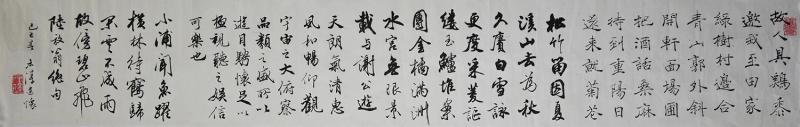 故人具鷄黍
邀我至田家
綠樹村邊合
青山郭外斜
開軒面場圃
把酒話桑麻
待到重陽日
還来就菊花
松竹留因夏
溪山去為秋
久賡白雪詠
更度采菱謳
縷玉鱸堆案
團金橘滿洲
水宮無限景
載与謝公遊
天朗氣清惠
風和暢仰觀
宇宙之大俯察
品類之盛所以
遊目騁懷足以
極視聽之娱信
可樂也
小浦聞魚躍
橫林待鶴歸
閑雲不成雨
故傍碧山飛
陸放翁絶句